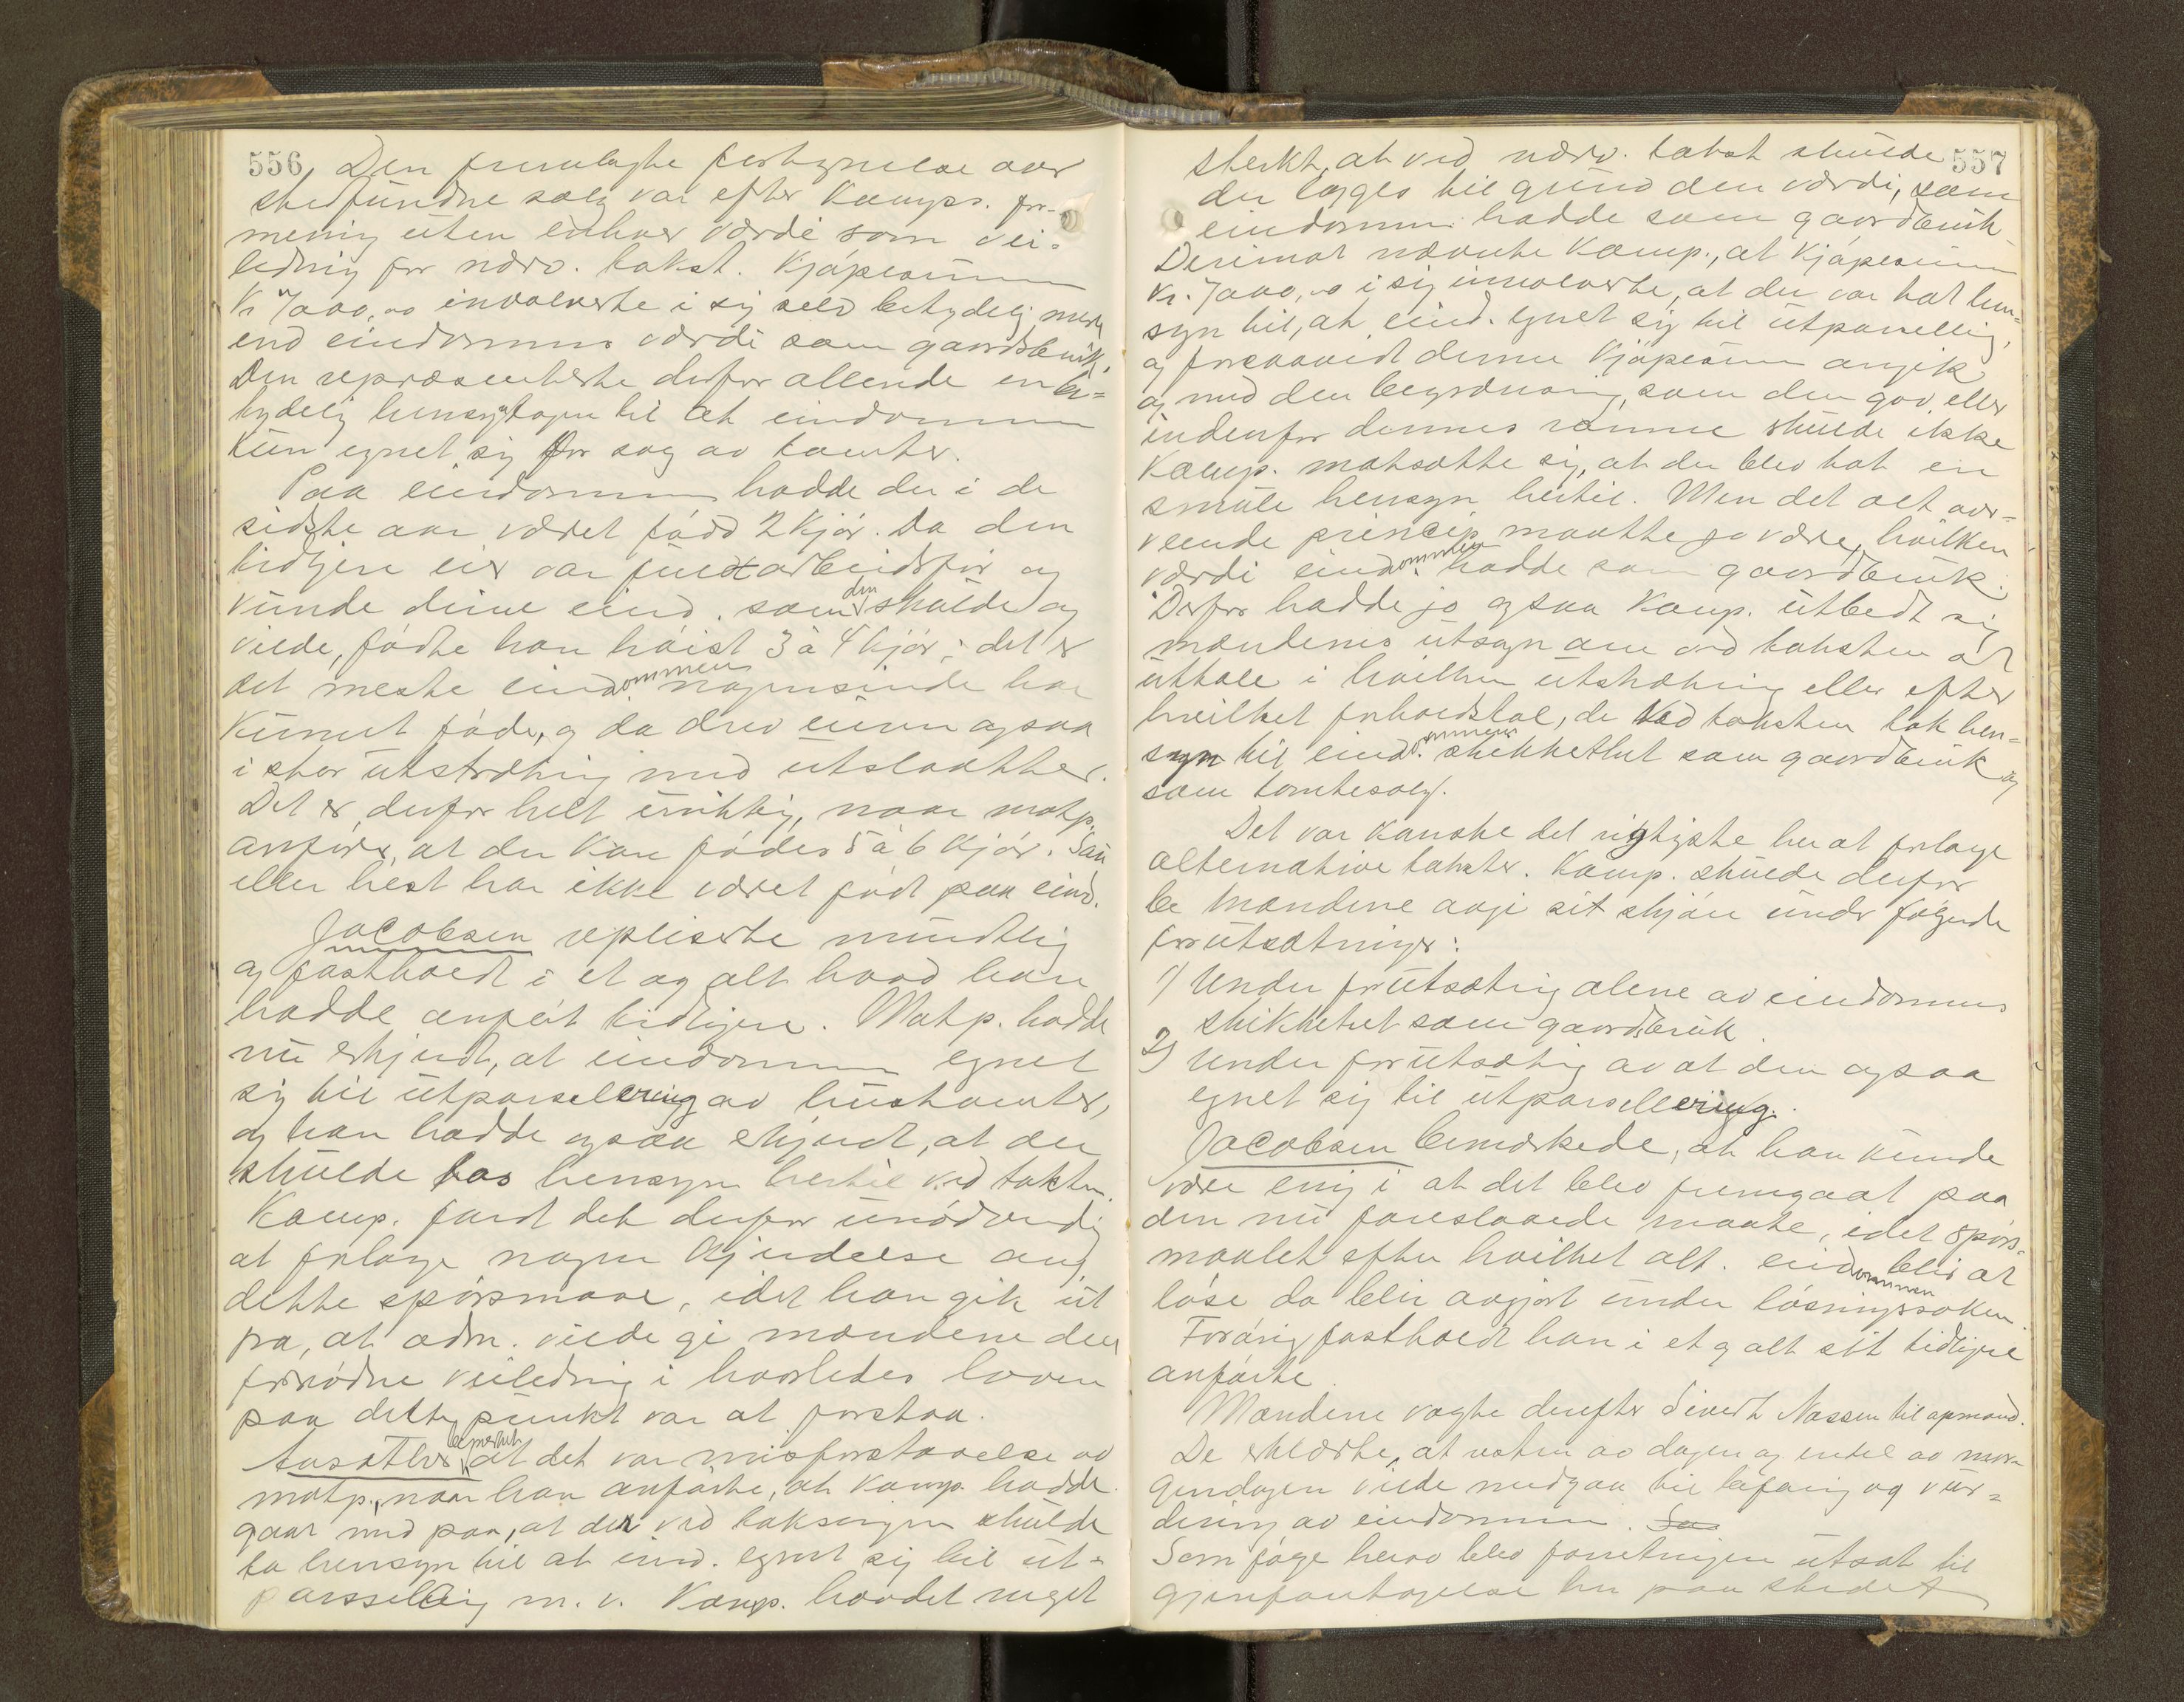 556
Den fremlagte fortegnelse over
stedfundne salg var efter Kamps. for-
mening uten enhver værdi som vei-
ledning for nærv. takst. Kjøpesummen
Kr 7000,00 involverte i sig selv betydelig mere
end eiendommens værdi som gaardsbruk.
Den repræsenterte derfor allerede en be-
tydelig hensyntagen til at eiendommen
kun egnet sig for salg av tomter.
Paa eiendommen hadde der i de
sidste aar været fødd 2 Kjør. Da den
tidligere eier var fuldt arbeidsfør og
kunde drive eiend. som den skulde og
vilde, fødte han høist 3 à 4 Kjør; det er
det meste eiendommen nogensinde har
kunnetføde, og da drev eieren ogsaa
i stor utstrækning med utslaatter.
Det er derfor helt uriktig, naar motp.
anfører, at der kan fødes 5 à 6 Kjør. Sau
eller hest har ikke været født paa eiend.
Jacobsen repliserte mundtlig
og fastholdt i et og alt hvad han
hadde anført tidligere. Motp. hadde
nu erkjendt, at eiendommen egnet
sig til utparsellering av hustomter,
og han hadde ogsaa erkjendt, at der
skulde tas hensyn hertil ved taksten.
Kamp. fandt det derfor unødvendig
at forlange nogen kjendelse ang.
dette spørsmaal, idet han gik ut
fra, at adm. vilde gi mændene den
fornødne veiledning i hvorledes loven
paa dette punkt var at forstaa.
bemerket at det var misforstaaelse av
motp., naar han anførte, at Kamp. hadde
gaat med paa, at der ved takseringen skulde
ta hensyn til at eiend. egnet sig til ut-
parsellering m. v. Kamp. hævdet meget
557
sterkt, at ved nærv. takst skulde
der lægges til grund den værdi, som
eiendommen hadde som gaardsbruk.
Derimot nævnte Kamp., at Kjøpesummen
Kr. 7000,00 i sig involverte, at der var tat hen-
syn til, at eiend. egnet sig til utparsellering,
og forsaavidt denne Kjøpesum angik
og med den begrænsning, som den gav eller
indenfor dennes ramme skulde ikke
Kamp. motsætte sig, at der blev tat en
smule hensyn hertil. Men det alt over-
veiende princip maatte jo være, hvilken
værdi eiendommen hadde som gaardsbruk.
Derfor hadde jo ogsaa Kamp. utbedt sig
mændenes utsagn om ved taksten at
uttale i hvilken utstrækning eller efter
hvilket forholdstal, de ved taksten tok hen-
syn til eiendommens skikkethet som gaardsbruk og
som tomtesalg.
Det var kanske det rigtigste her at forlange
alternative takster. Kamp. skulde derfor
be mændene avgi sit skjøn under følgende
forutsætninger:
1) Under forutsætning alene av eiendommens
skikkethet som gaardsbruk
2) Under forutsætning av at den ogsaa
egnet sig til utparsellering.
Jacobsen bemerkede, at han kunde
være enig i at det blev fremgaat paa
den nu foreslaaede maate, idet spørs-
maalet efter hvilket alt. eiendommen blir at
løse da blir avgjort under løsningssaken.
Forøvrig fastholdt han i et og alt sit tidligere
anførte.
Mændene valgte derefter Sivert Nassen til opmand.
De erklærte, at resten av dagen og endel av mor-
gendagen vilde medgaa til befaring og vur-
dering av eiendommen.
Som følge herav blev forretningen utsat til
gjenforetagelse her paa stedet